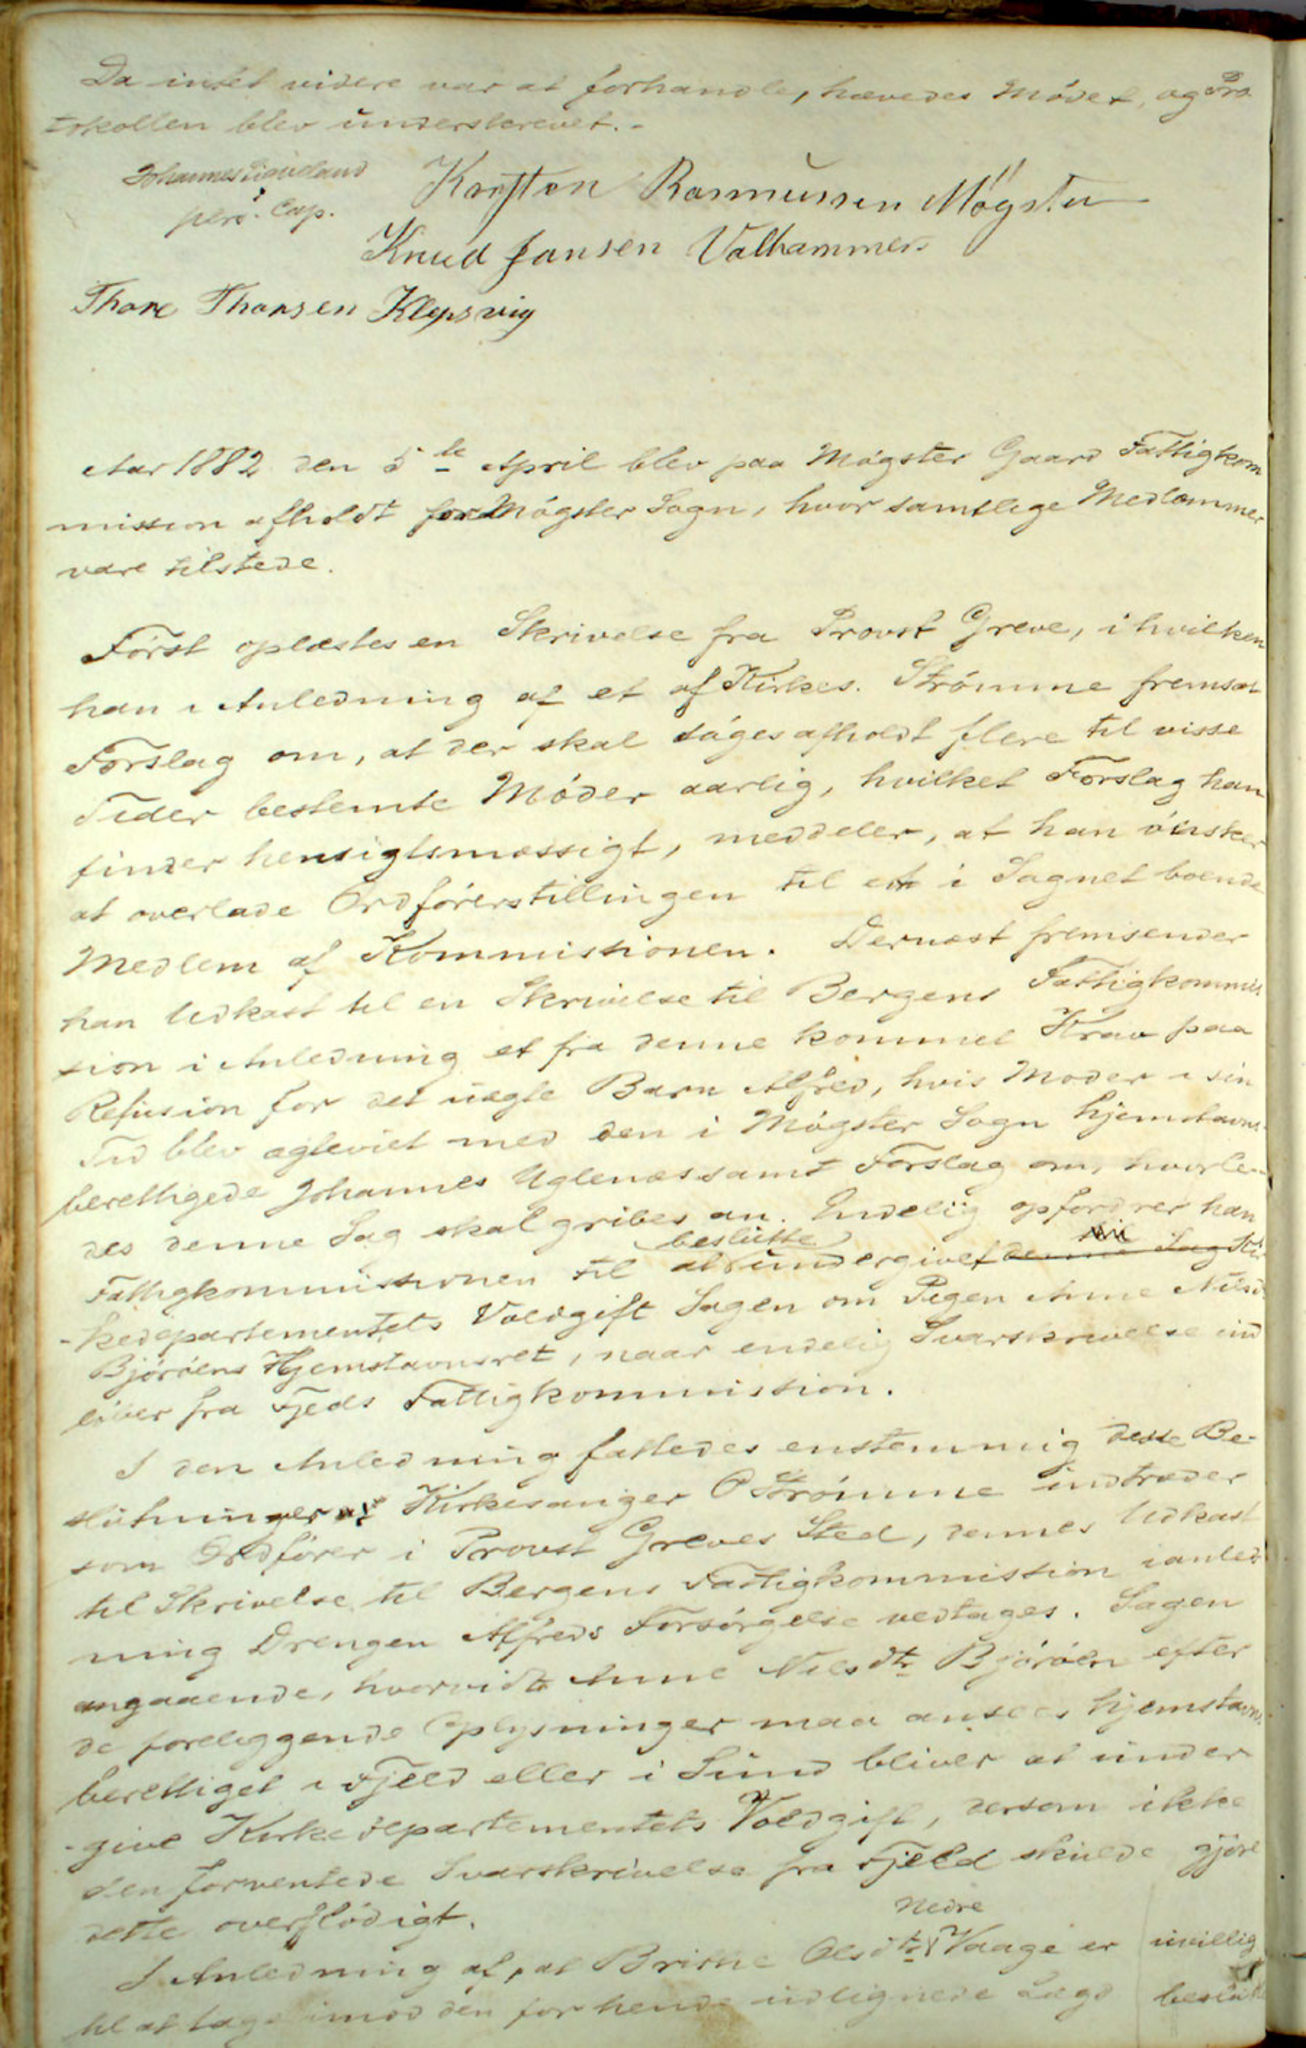 Da intet videre var at forhandle, hævedes Mødet, og Pro
tokollen blev underskrevet. -
Johannes
pers. Cap.
Karsten Rasmussen Møgster
Knud Jansen Valhammer
Thore Thorsen Klepsvig
Aar 1882 den 5te April blev paa Møgster Gaard Fattigkom
mission afholdt for Møgster Sogn, hvor samtlige Medlemmer
vare tilstede.
Først oplæstes en Skrivelse fra Provst Greve, i hvilken
han i Anledning af et af Kirkes. Strømme fremsat
Forslag om, at der skal søges afholdt flere til visse
Tider bestemte Møder aarlig, hvilket Forslag han
finder hensigtsmæssigt, meddeler, at han ønsker
at overlade Ordførerstillingen til et i Sognet boende
Medlem af Kommissionen. Dernæst fremsender
han Udkast til en Skrivelse til Bergens Fattigkommis
sion i Anledning et fra denne kommet Krav paa
Refusion for det uægte Barn Alfred, hvis Moder i sin
Tid blev ægteviet med den i Møgster Sogn hjemstavns-
berettigede Johannes Uglenæs samt Forslag om, hvorle-
des denne Sag skal gribes an. Endelig opfordrer han
Fattigkommissionen til at beslutte undergivet denne Sag Kir
-kedepartementets Voldgift Sagen om Pigen Anne Nilsd
Bjørøens Hjemstavnsret, naar endelig Svarskrivelse ind
løber fra Fjelds Fattigkommission.
I den Anledning fattedes enstemmig disse Be-
slutninger: Kirkesanger O Strømme indtræder
som Ordfører i Provst Greves Sted, dennes Udkast
til Skrivelse til Bergens Fattigkommission i anled
ning Drengen Alfreds Forsørgelse vedtages. Sagen
angaaende, hvorvidt Anne Nilsdtr Bjørøen efter
de foreliggende Oplysninger maa ansees hjemstavns-
berettiget i Fjeld eller i Sund bliver at under
-give Kirkedepartementets Voldgift, dersom ikke
den forventede Svarskrivelse fra Fjeld skulde gjøre
dette overflødigt.
I Anledning af, at Brithe Olsdtr Nedre Vaage er uvillig
til at tage imod den for hende udlignede Lægd beslut